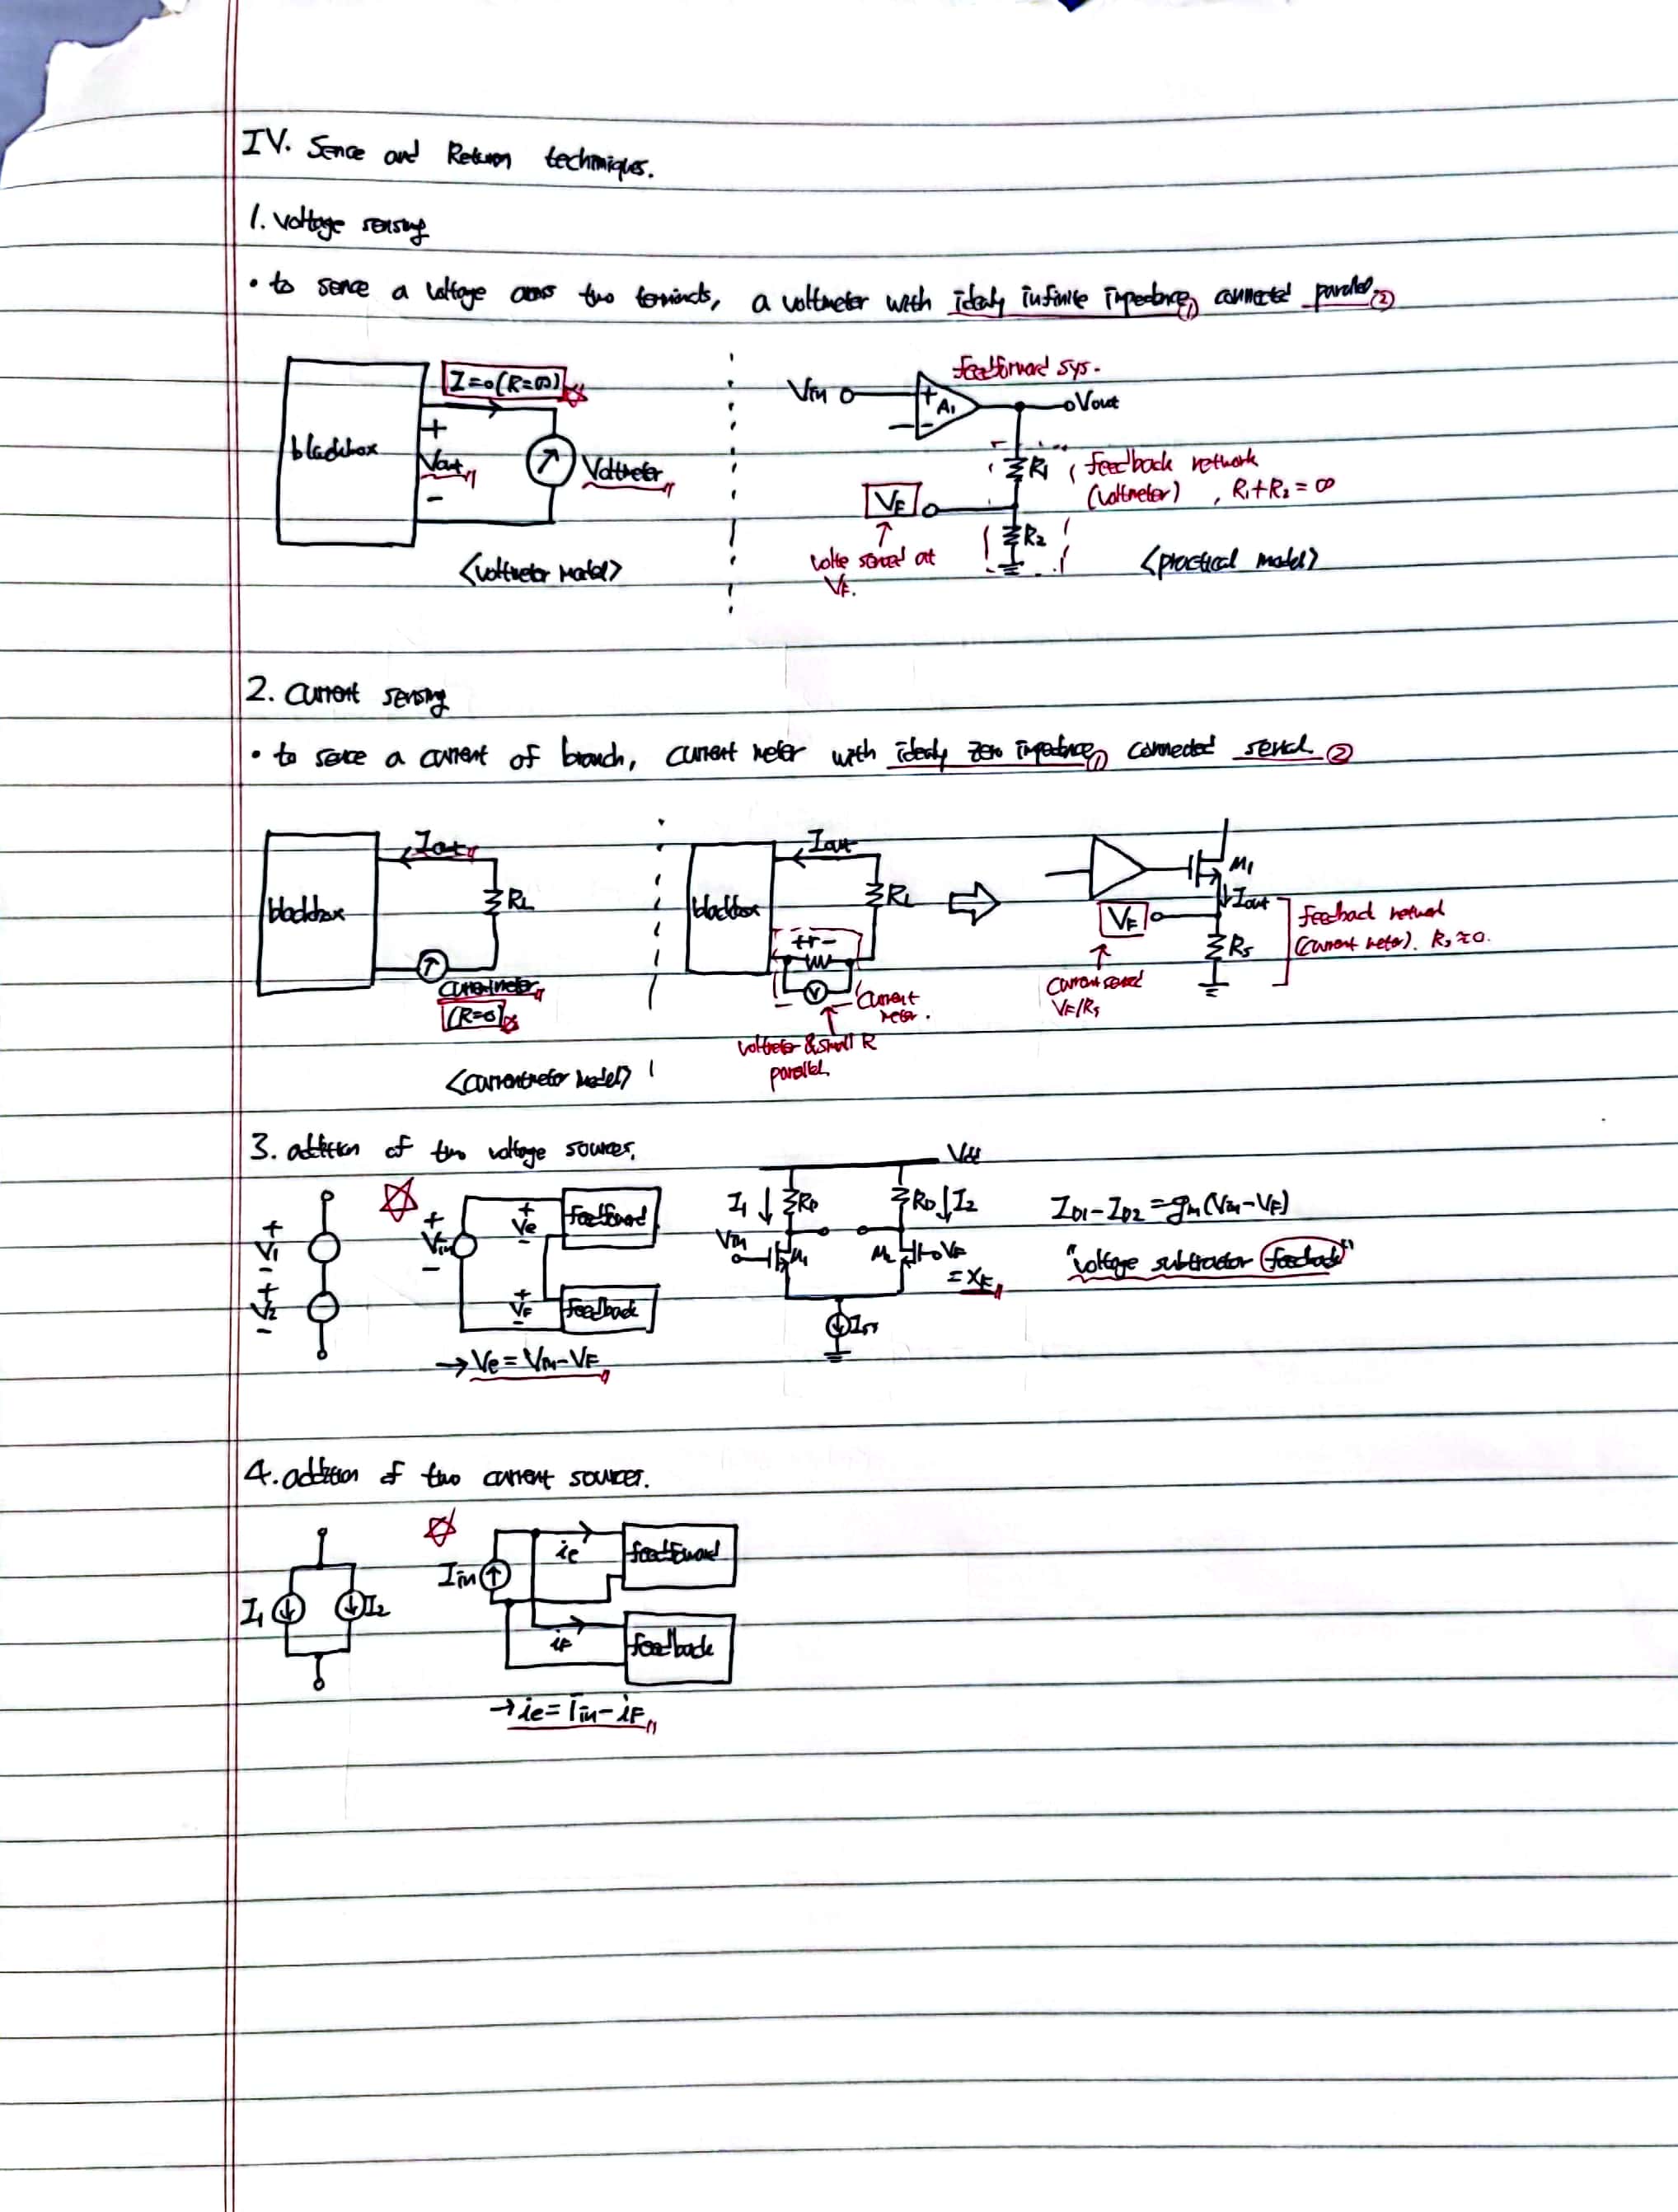 IV. Sence and Return techniques.
1. Voltage sensing
• to sence a voltage across two terminals, a voltmeter with idealy infinite impedance① connected parallel②
I=0(R=∞)
blackbox
+
Vout
-
Voltmeter
<voltmeter model>
feedforward sys.
Vin
+
A1
-
Vout
R1
feedback network
(voltmeter), R1+R2=∞
VF
R2
sensed at
VF.
<practical model>
2. Current sensing
• to sence a current of branch, current meter with idealy zero impedance① connected serial②
Iout
blackbox
RL
currentmeter
(R=0)
<currentmeter model>
Iout
blackbox
RL
+r-
V
current
meter.
voltmeter & small R
parallel
M1
Iout
VF
RS
current sensed
VF/RS
feedback network
(current meter). RS≈0.
3. addition of two voltage sources.
+
V1
-
+
V2
-
+
Vin
-
+
Ve
-
feedforward
+
VF
-
feedback
→Ve=Vin-VF
Vdd
I1
RD
RD
I2
Vin
M1
M2
VF
=XF
ISS
ID1-ID2=gm(Vin-VF)
"voltage subtractor feedback"
4. addition of two current sources.
I1
I2
Iin
ie
feedforward
iF
feedback
→ie=Iin-iF